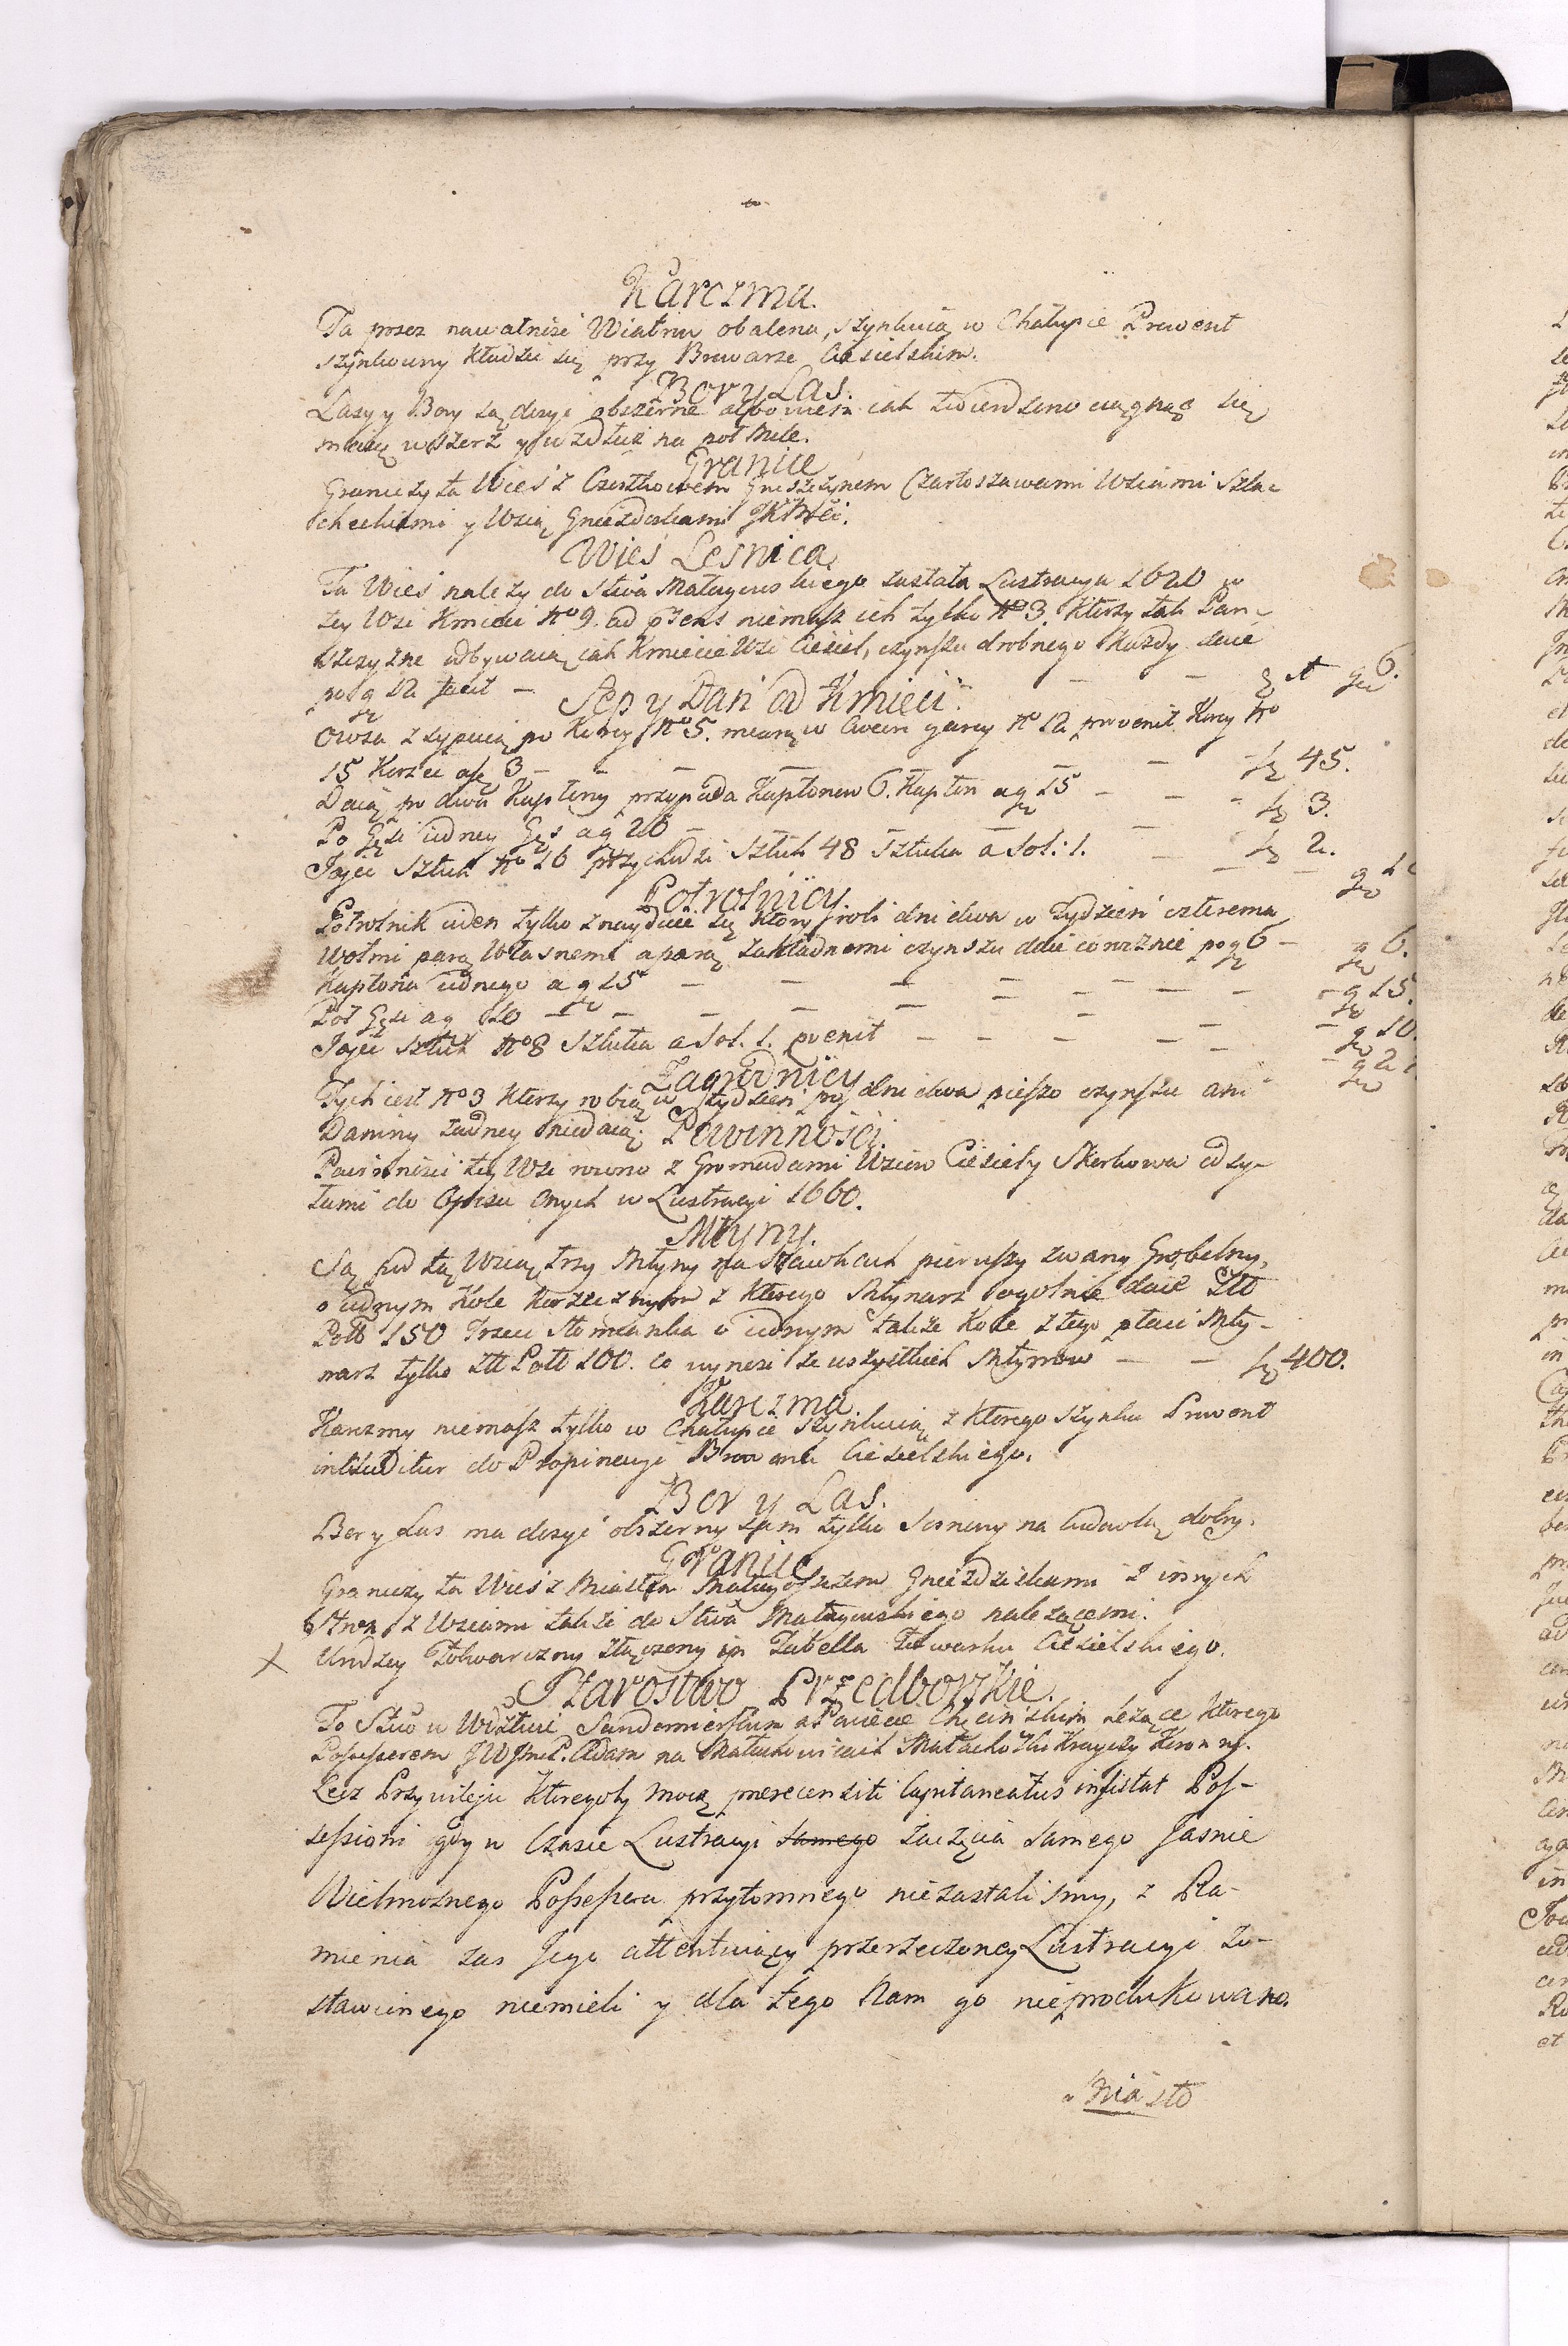 Karczma.
Ta przez nawalność Wiatru obalona, szynkuią w Chałupie Prowent
szynkowny kładzie się przy Browarze Cieselskim.
Bory Las.
Lasy y Bory są dosyć obszerne albowiem iak twierdzono ciągną się
milę wszerz y wzdłuż na poł Mile.
Granice
Graniczy ta Wieś z Gnieszczynem Czartoszawami Wsiami Szla-
checkiemi y Wsią Gnieżdziskami JKMści.
Wieś Lesnica
Ta Wieś należy do Stwa Małogoskiego zastała Lustracya 1620 w
tey Wsi Kmieci No 9. ad præsens niemasz ich tylko No 3. Którzy tak Pan-
szczyznę odbywaią iak Kmiecie Wsi Ciesiel, czynszu drobnego każdy daie
po gr 12 facit — zł 1 gr 6.
Sep y Dań od Kmieci.
Owsa zsypuią po Korcy No 5. miarą w Ćwierć garcy No 12 provenit Korcy No
15 Korzec a zł 3 — — — — — — zł 45.
Daią po dwa Kapłony przypada Kapłonow 6. Kapłon a gr 15 — — — zł 3.
Po Gęsi iedney Gęś a gr 20 — — — — zł 2.
Jajec Sztuk No 16 przychodzi Sztuk 48 Sztuka a Sol: 1. — — — gr
Połrolnicy.
Połrolnik ieden tylko znayduie się który robi dni dwa w Tydzień czterema
Wołmi parą Własnemi a parą zakładnemi czynszu daie corocznie po gr 6 — gr 6.
Kapłona iednego a gr 15 — — — — — — — gr 15.
Poł Gęsi a gr 10 — — — — — — — gr 10.
Jajec Sztuk No 8 Sztuka a Sol. 1. provenit — — — — — — gr 2
Zagrodnicy
Tych iest No 3 Którzy robią w tydzień po dni dwa pieszo czynszu ani
Daniny żadney niedaią.
Powinności.
Powinności tey Wsi rowno z Gromadami Wsiow Ciesieły Skorkowa odsy-
łamy do Opisu onych w Lustracyi 1660.
Młyny.
Są pod tą Wsią trzy Młyny na Stawkach pierwszy zwany Grobelny,
o iednym Kole Korzecznym z Którego Młynarz ogolnie daie Złł
Poll 150 Trzeci Słomianka o iednym także Kole z tego płaci Mły-
narz tylko Złł Poll 100. co wynosi ze wszystkich Młynow — — zł 400.
Karczma.
Karczmy niemasz tylko w Chałupie szynkuią z Którego szynku Prowent
includitur do Propinacyi Browaru Cieselskiego.
Bor y Las.
Bor y Las ma dosyć obszerny tam tylko Sosnowy na budowlą dobry.
Granice
Graniczy ta Wieś z Miastem Małogoszczem Gnieżdziskami z innych
Stron z Wsiami także do Stwa Małogoskiego należącemi.
Undzey Folwarczny złączony in Tabella Folwarku Cieselskiego.
Starostwo Przedborskie.
To Stwo w Wdztwie Sandomierskim a Powiecie Chęcinskim leżące Którego
Possessorem JWJmć P. Adam na Małachowicach Małachowski Krayczy Koronny.
Lecz Przywileju Któregoby mocą præecensiti Capitaneatus insistat Pos-
sessioni gdy w Czasie Lustracyi zaczęcia samego Jasnie
Wielmożnego Possessora przytomnego niezastaliśmy, z Ra-
mienia zas Jego attentuiący przerzeczoney Lustracyi zo-
stawionego niemieli y dla tego Nam go nieprodukowano.
Miasto